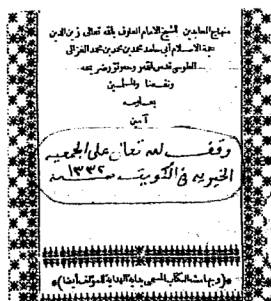 منهاج العابدين للشيخ الامام العارف بالله تعالى زين الدين
حجة الاسلام أبي حامد محمد بن محمد بن محمد الغزالي
الطوسي قدس الله سره ونور ضريحه
ونفعنا والمسلمين
بعلومه
آمين
وقف لله تعالى على الجمعيه
الخيريه في الكويت سنه ١٣٣٢
(وبهامشه الكتاب المسمى بداية الهداية للمؤلف أيضا)